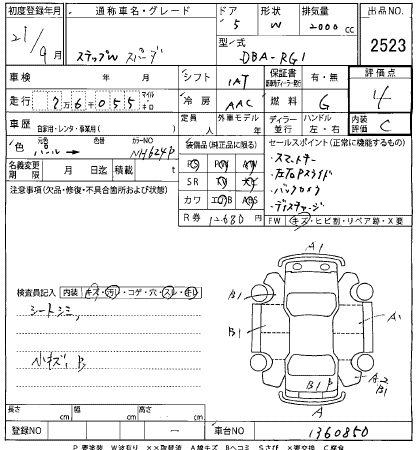 初度登録年月 通称車名・グレード ドア 形状 排気量 出品NO
21/9月 ステップW スパーダ 5 W 2000cc 2523
型式 DBA-RG1
車検 年 月 シフト IAT 保証書 有・無 評価点
走行 7万6千055 マイル キロ 冷房 AAC 燃料 G 4
車歴 自家用・レンタ・事業用( ) 定員 人 外車モデル 年 ディーラー 並行 ハンドル 左・右 内装評価 C
色 パール→ 色替 カラーNO NH624P
装備品(純正品に限る) セールスポイント(正常に機能するもの)
名義変更期限 月 日迄 積載 t
注意事項(欠品・修復・不具合箇所および状態)
PS PW
SR AW
カワ ABS
R券 12,680円
・スマートキー
・バックカメラ
FW キズ・ヒビ割・リペア跡・X要
検査員記入 内装 キズ・汚レ・コゲ・穴・スレ・キレ
シートシミ,
小キズ, B
A1
B1
B1
A1
A2
B1
B1 P
A1
長さ cm 幅 cm 高さ cm
登録NO 一 車台NO 1360850
P 要塗装 W波有り ××取替済 A線キズ Bヘコミ Sさび ×要交換 C腐食